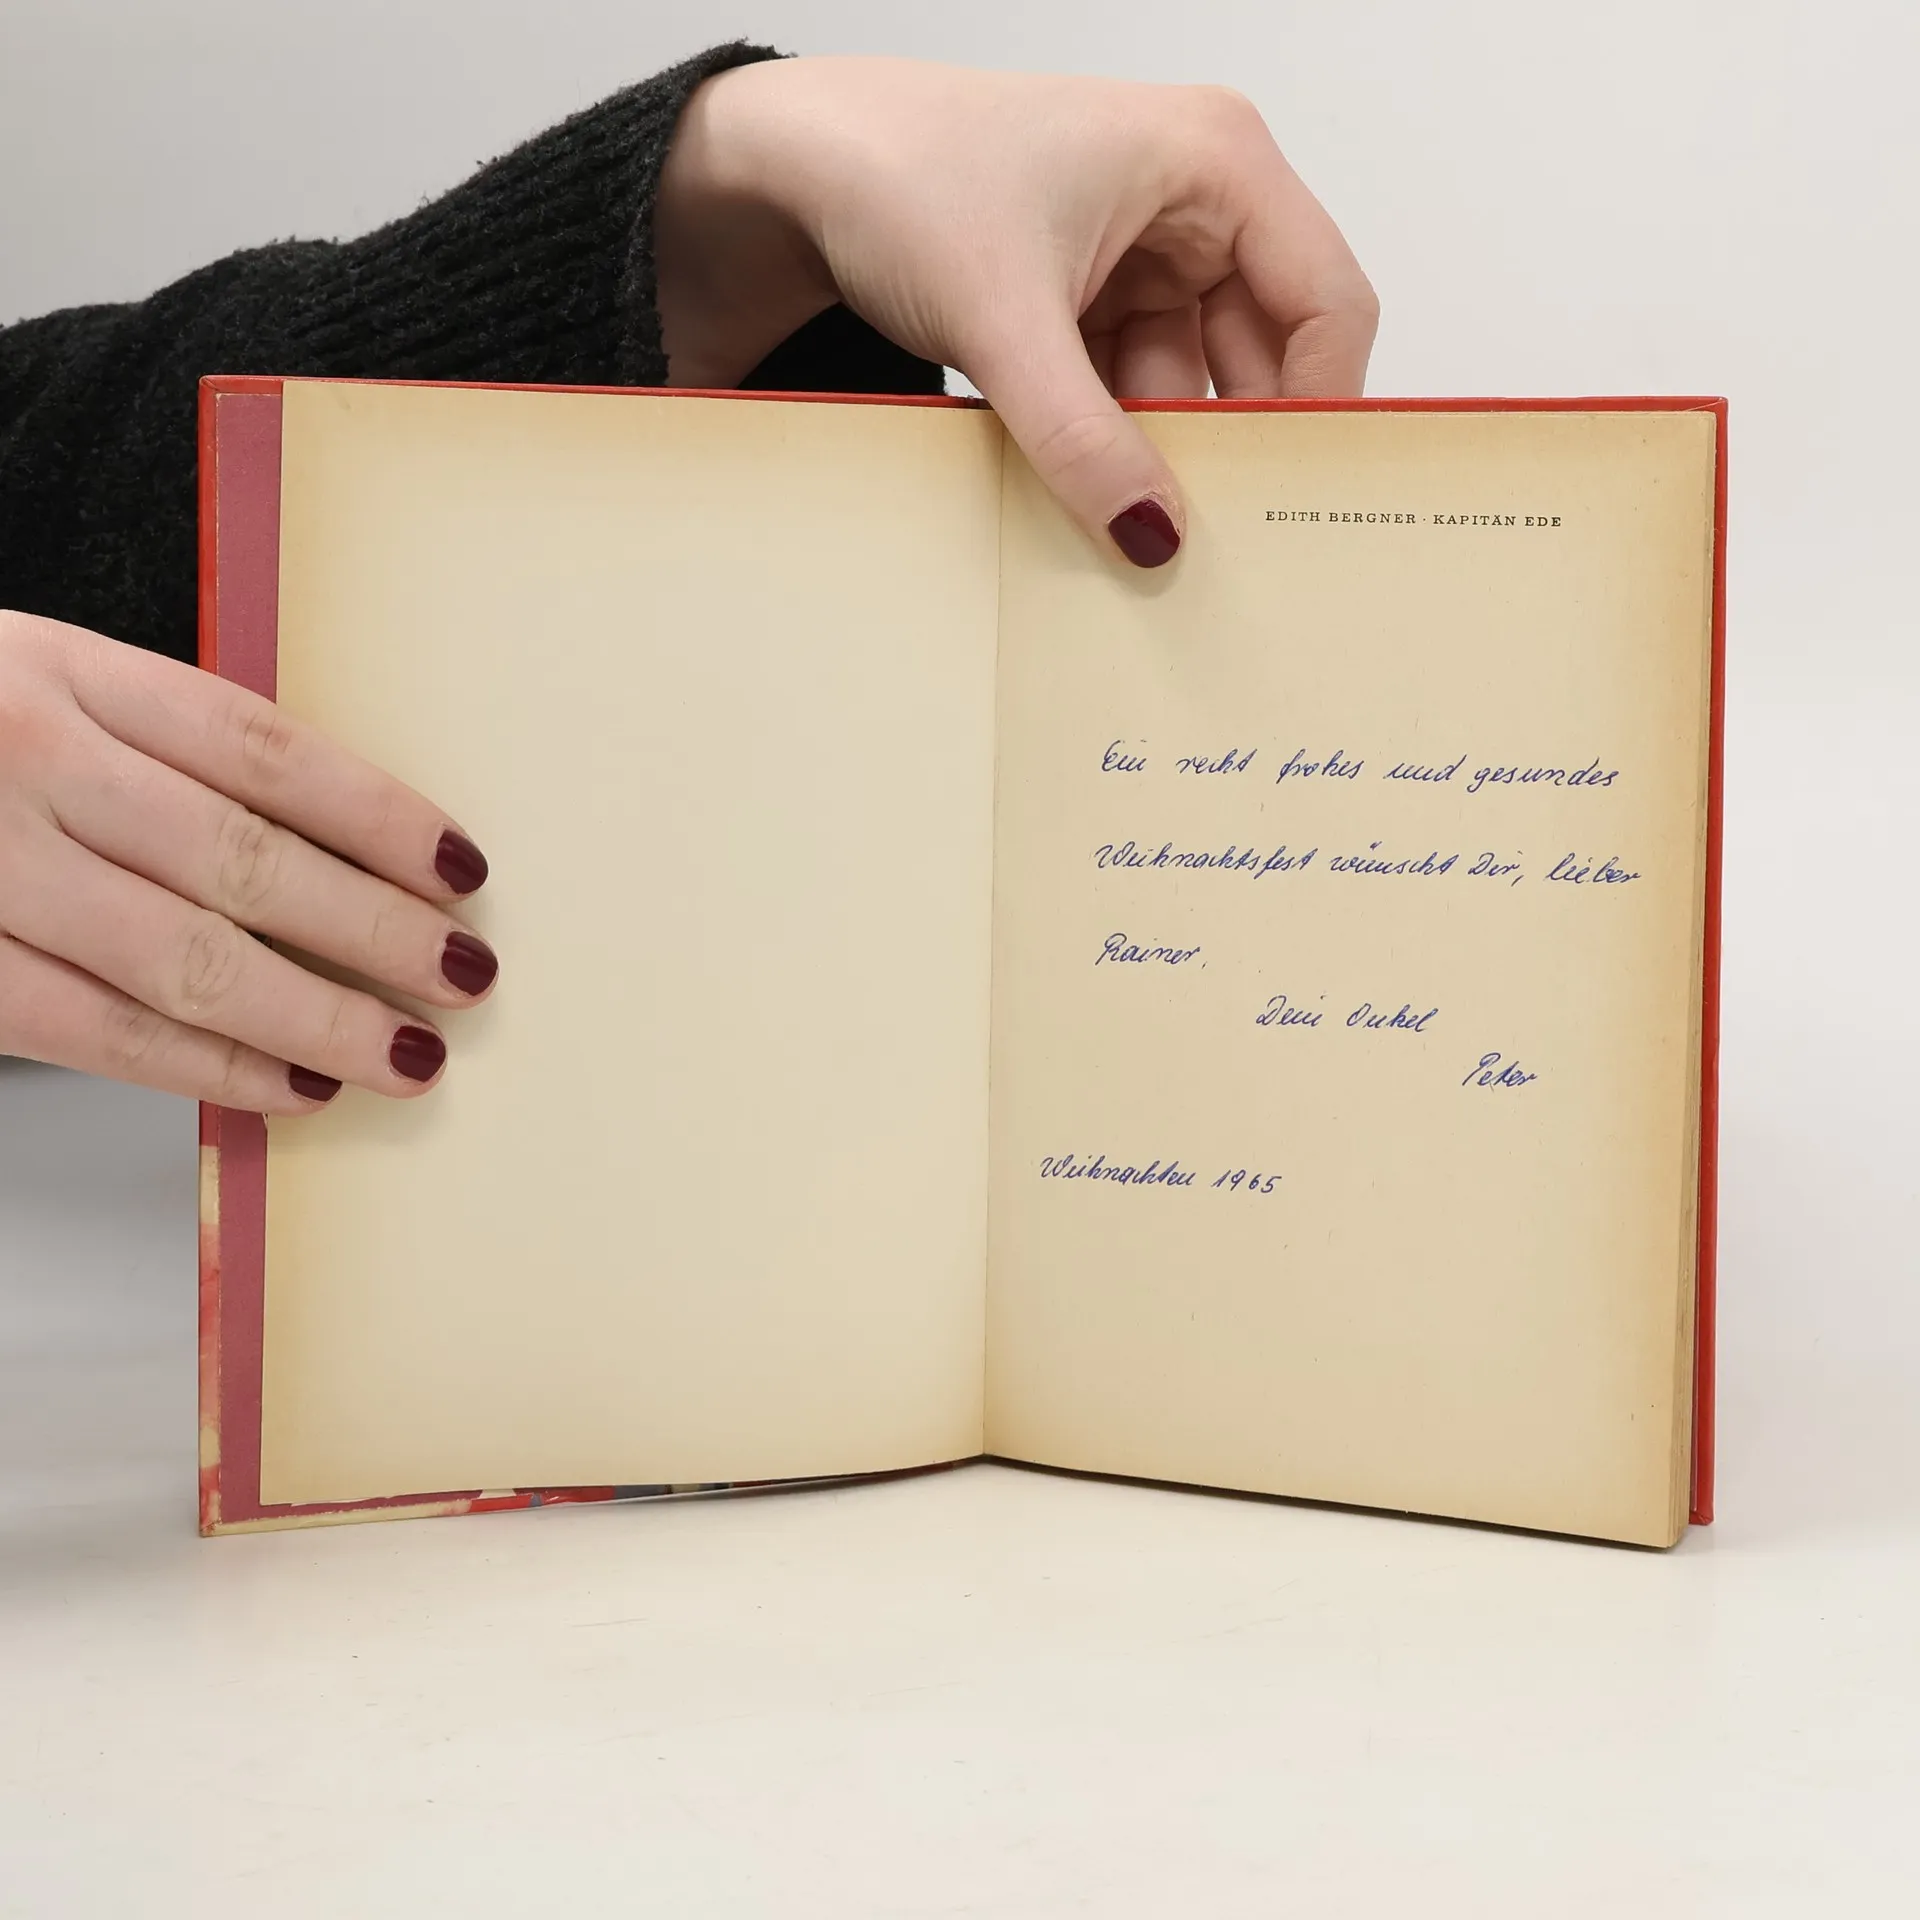 EDITH BERGNER · KAPITÄN EDE
Ein recht frohes und gesundes
Weihnachtsfest wünscht Dir, lieber
Rainer,
Dein Onkel
Peter
Weihnachten 1965